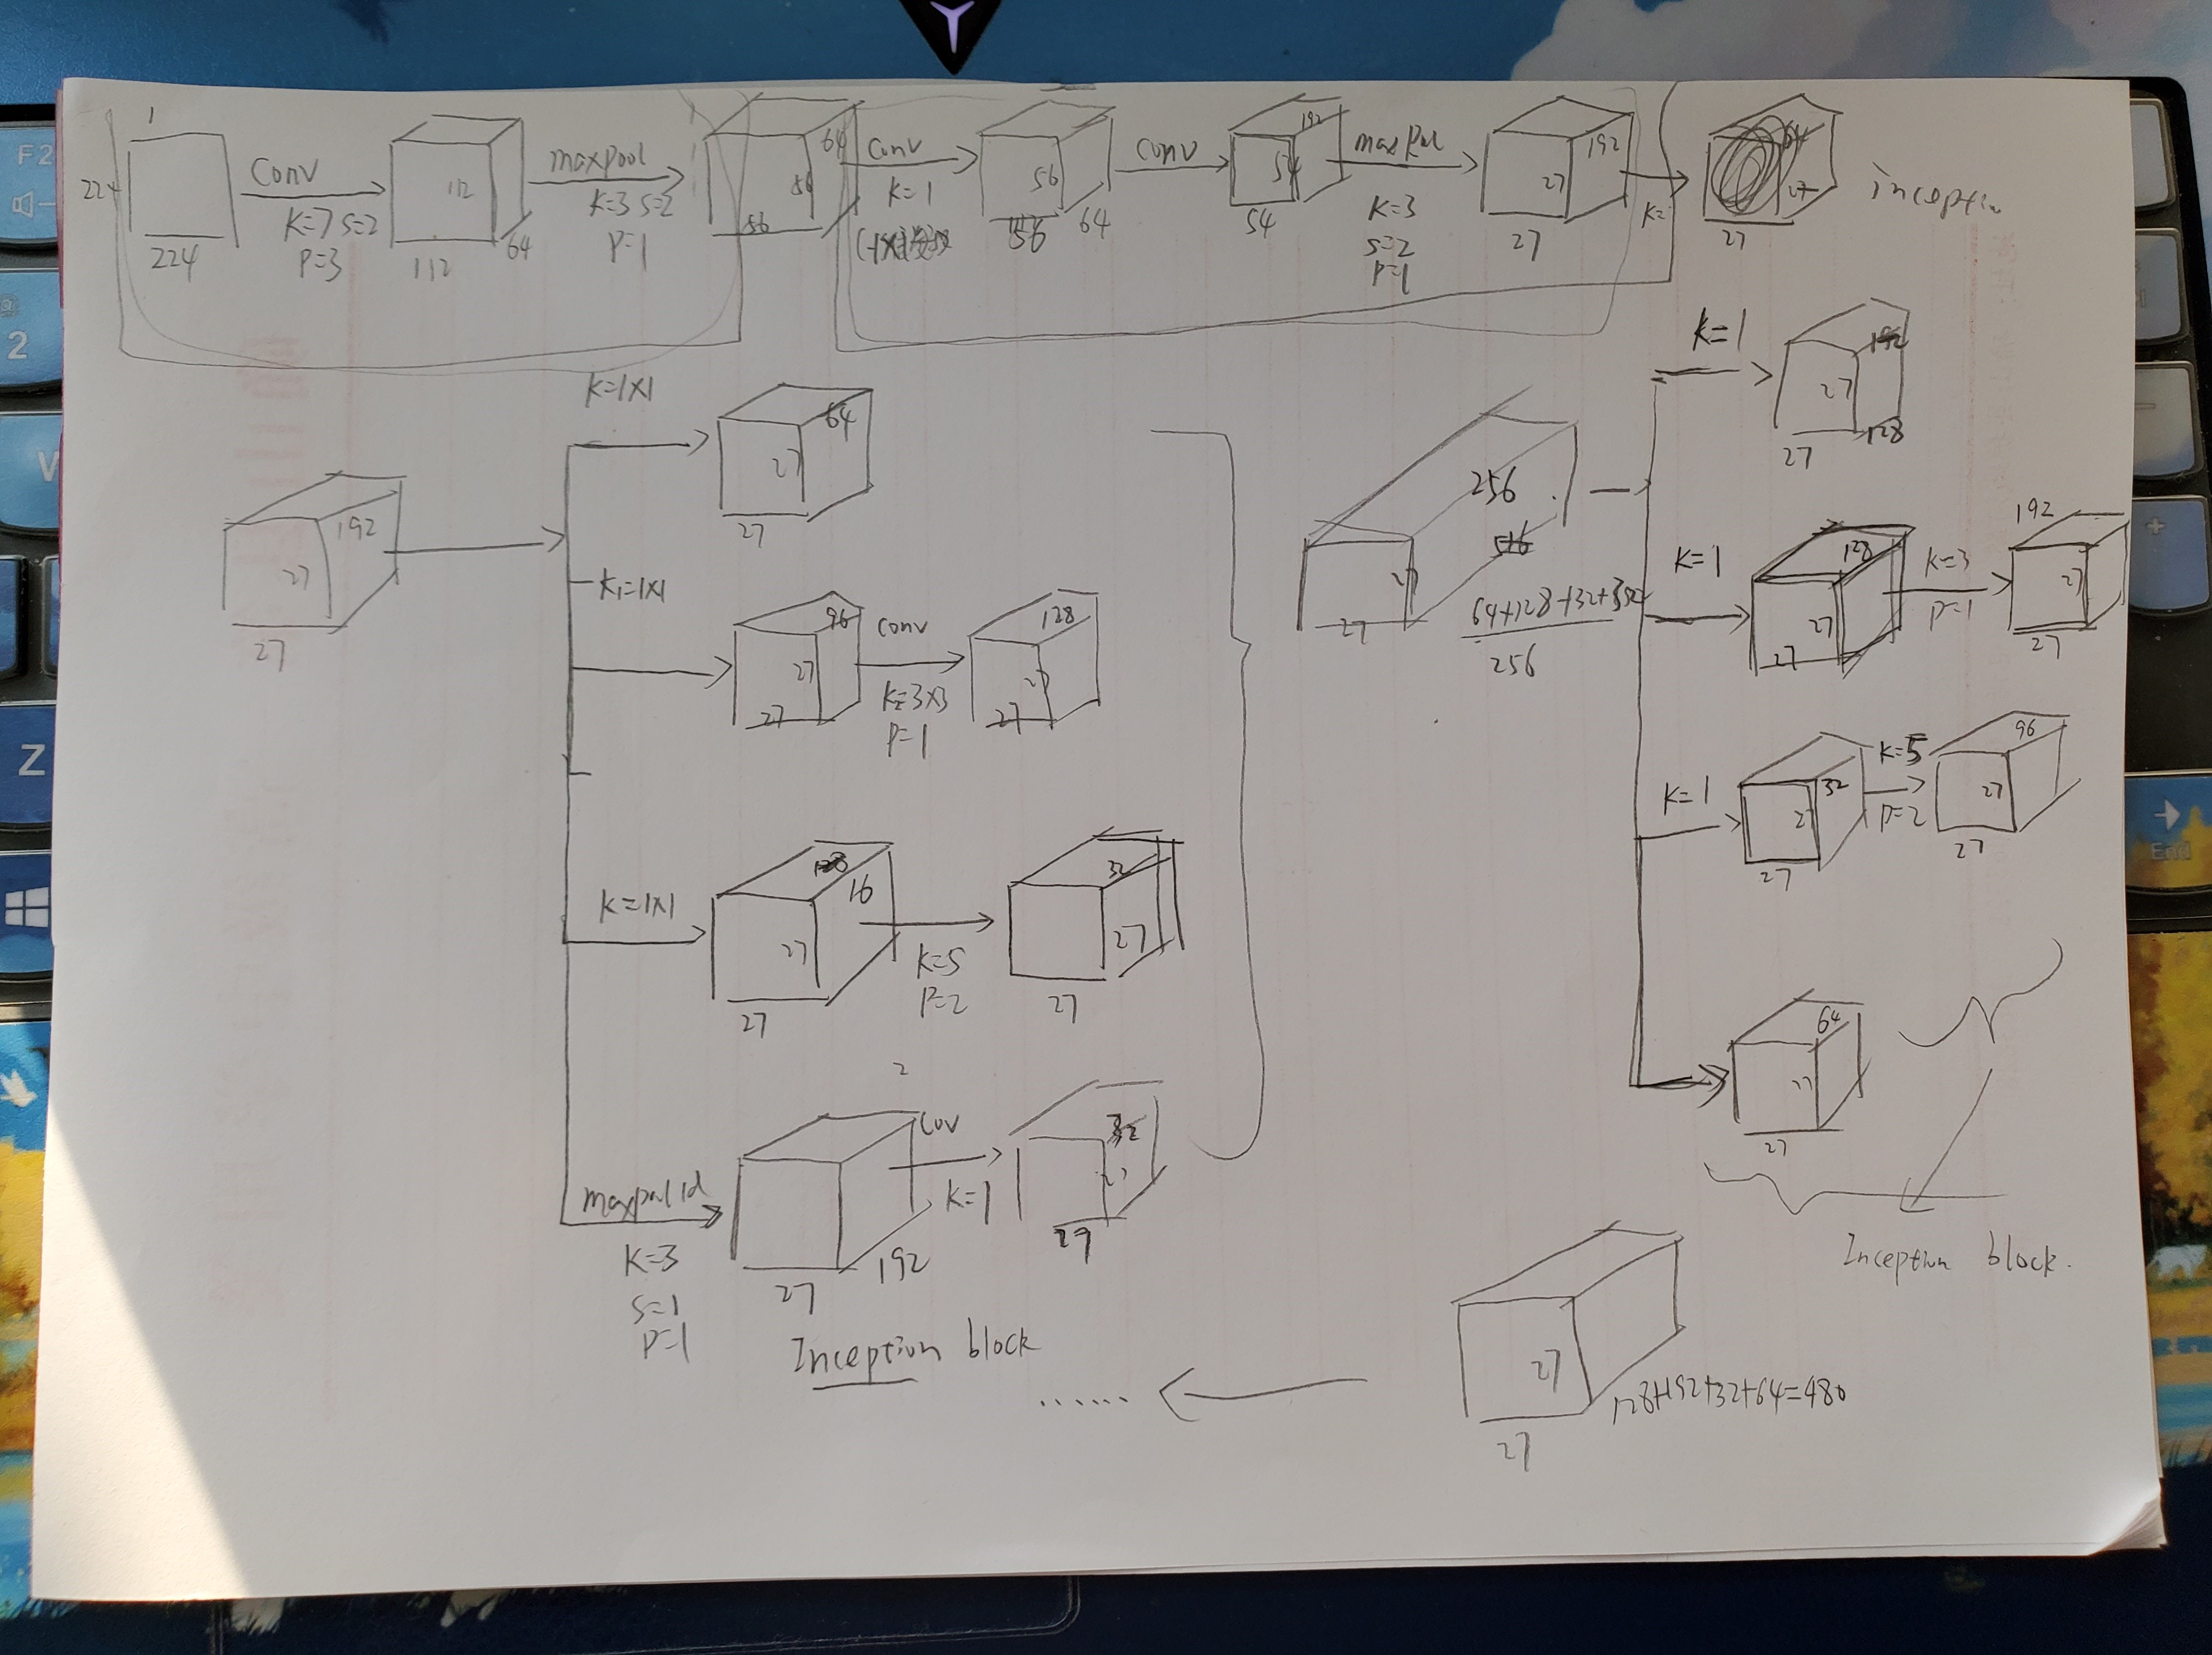 1
224
224
Conv
K=7 S=2
P=3
112
112
64
maxpool
K=3 S=2
P=1
64
56
56
Conv
K=1
56
56
64
Conv
192
54
54
maxpool
K=3
S=2
P=1
192
27
27
K=
27
27
inception
192
27
27
K=1X1
64
27
27
K1=1X1
96
27
27
Conv
K=3X3
P=1
128
27
27
K=1X1
16
27
27
K=5
P=2
32
27
27
2
maxpool 1d
K=3
S=1
P=1
27
192
Cov
K=1
32
27
29
Inception block
256
27
27
64+128+32+32
256
K=1
27
27
128
K=1
128
27
27
K=3
P=1
192
27
27
K=1
32
27
27
K=5
P=2
96
27
27
64
27
27
Inception block.
27
27
128+192+32+64=480
......
F2
2
W
Z
End